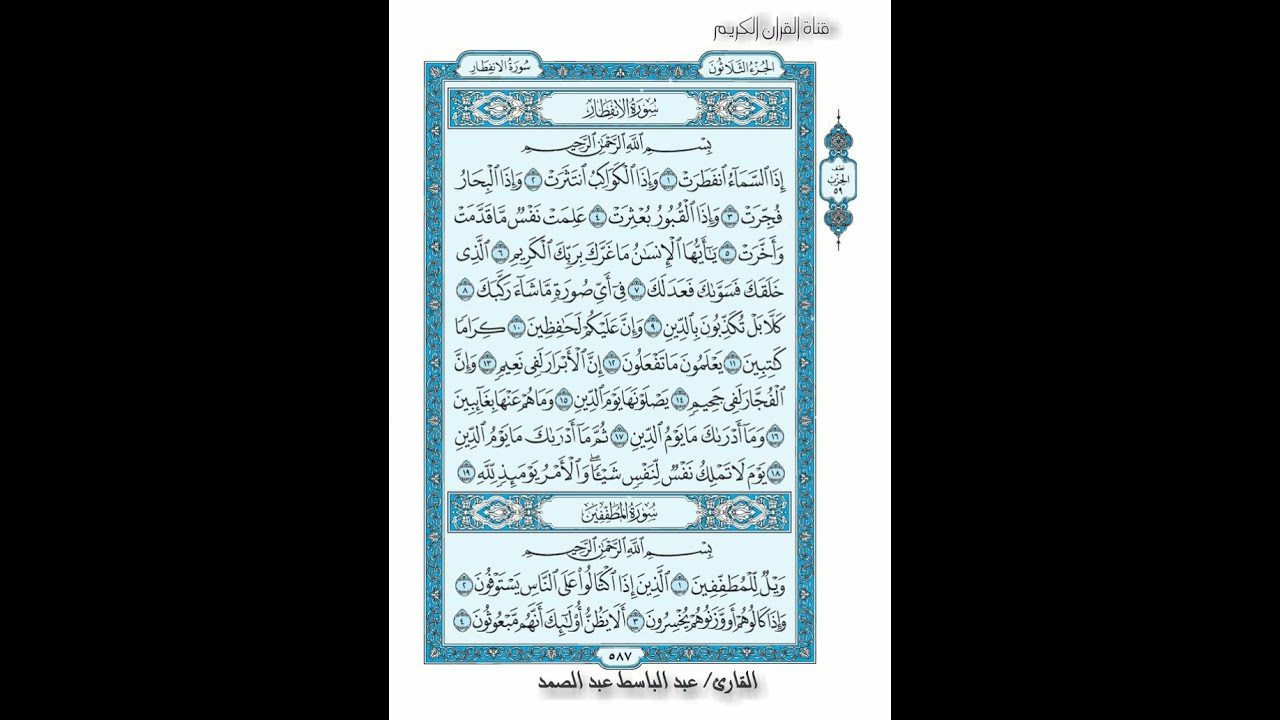 قناة القران الكريم
الجزء الثلاثون
سورة الانفطار
سُورَةُ الانفِطَارِ
بِسْمِ ٱللَّهِ ٱلرَّحْمَٰنِ ٱلرَّحِيمِ
إِذَا ٱلسَّمَآءُ ٱنفَطَرَتْ ١ وَإِذَا ٱلْكَوَاكِبُ ٱنتَثَرَتْ ٢ وَإِذَا ٱلْبِحَارُ
فُجِّرَتْ ٣ وَإِذَا ٱلْقُبُورُ بُعْثِرَتْ ٤ عَلِمَتْ نَفْسٌ مَّا قَدَّمَتْ
وَأَخَّرَتْ ٥ يَٰٓأَيُّهَا ٱلْإِنسَٰنُ مَا غَرَّكَ بِرَبِّكَ ٱلْكَرِيمِ ٦ ٱلَّذِى
خَلَقَكَ فَسَوَّىٰكَ فَعَدَلَكَ ٧ فِىٓ أَىِّ صُورَةٍ مَّا شَآءَ رَكَّبَكَ ٨
كَلَّا بَلْ تُكَذِّبُونَ بِٱلدِّينِ ٩ وَإِنَّ عَلَيْكُمْ لَحَٰفِظِينَ ١٠ كِرَامًا
كَٰتِبِينَ ١١ يَعْلَمُونَ مَا تَفْعَلُونَ ١٢ إِنَّ ٱلْأَبْرَارَ لَفِى نَعِيمٍ ١٣ وَإِنَّ
ٱلْفُجَّارَ لَفِى جَحِيمٍ ١٤ يَصْلَوْنَهَا يَوْمَ ٱلدِّينِ ١٥ وَمَا هُمْ عَنْهَا بِغَآئِبِينَ
١٦ وَمَآ أَدْرَىٰكَ مَا يَوْمُ ٱلدِّينِ ١٧ ثُمَّ مَآ أَدْرَىٰكَ مَا يَوْمُ ٱلدِّينِ
١٨ يَوْمَ لَا تَمْلِكُ نَفْسٌ لِّنَفْسٍ شَيْـًٔا ۖ وَٱلْأَمْرُ يَوْمَئِذٍ لِّلَّهِ ١٩
سُورَةُ المُطَفِّفِينَ
بِسْمِ ٱللَّهِ ٱلرَّحْمَٰنِ ٱلرَّحِيمِ
وَيْلٌ لِّلْمُطَفِّفِينَ ١ ٱلَّذِينَ إِذَا ٱكْتَالُوا۟ عَلَى ٱلنَّاسِ يَسْتَوْفُونَ ٢
وَإِذَا كَالُوهُمْ أَو وَّزَنُوهُمْ يُخْسِرُونَ ٣ أَلَا يَظُنُّ أُو۟لَٰٓئِكَ أَنَّهُم مَّبْعُوثُونَ ٤
٥٨٧
نصف
الحزب
٥٩
القارئ/ عبد الباسط عبد الصمد